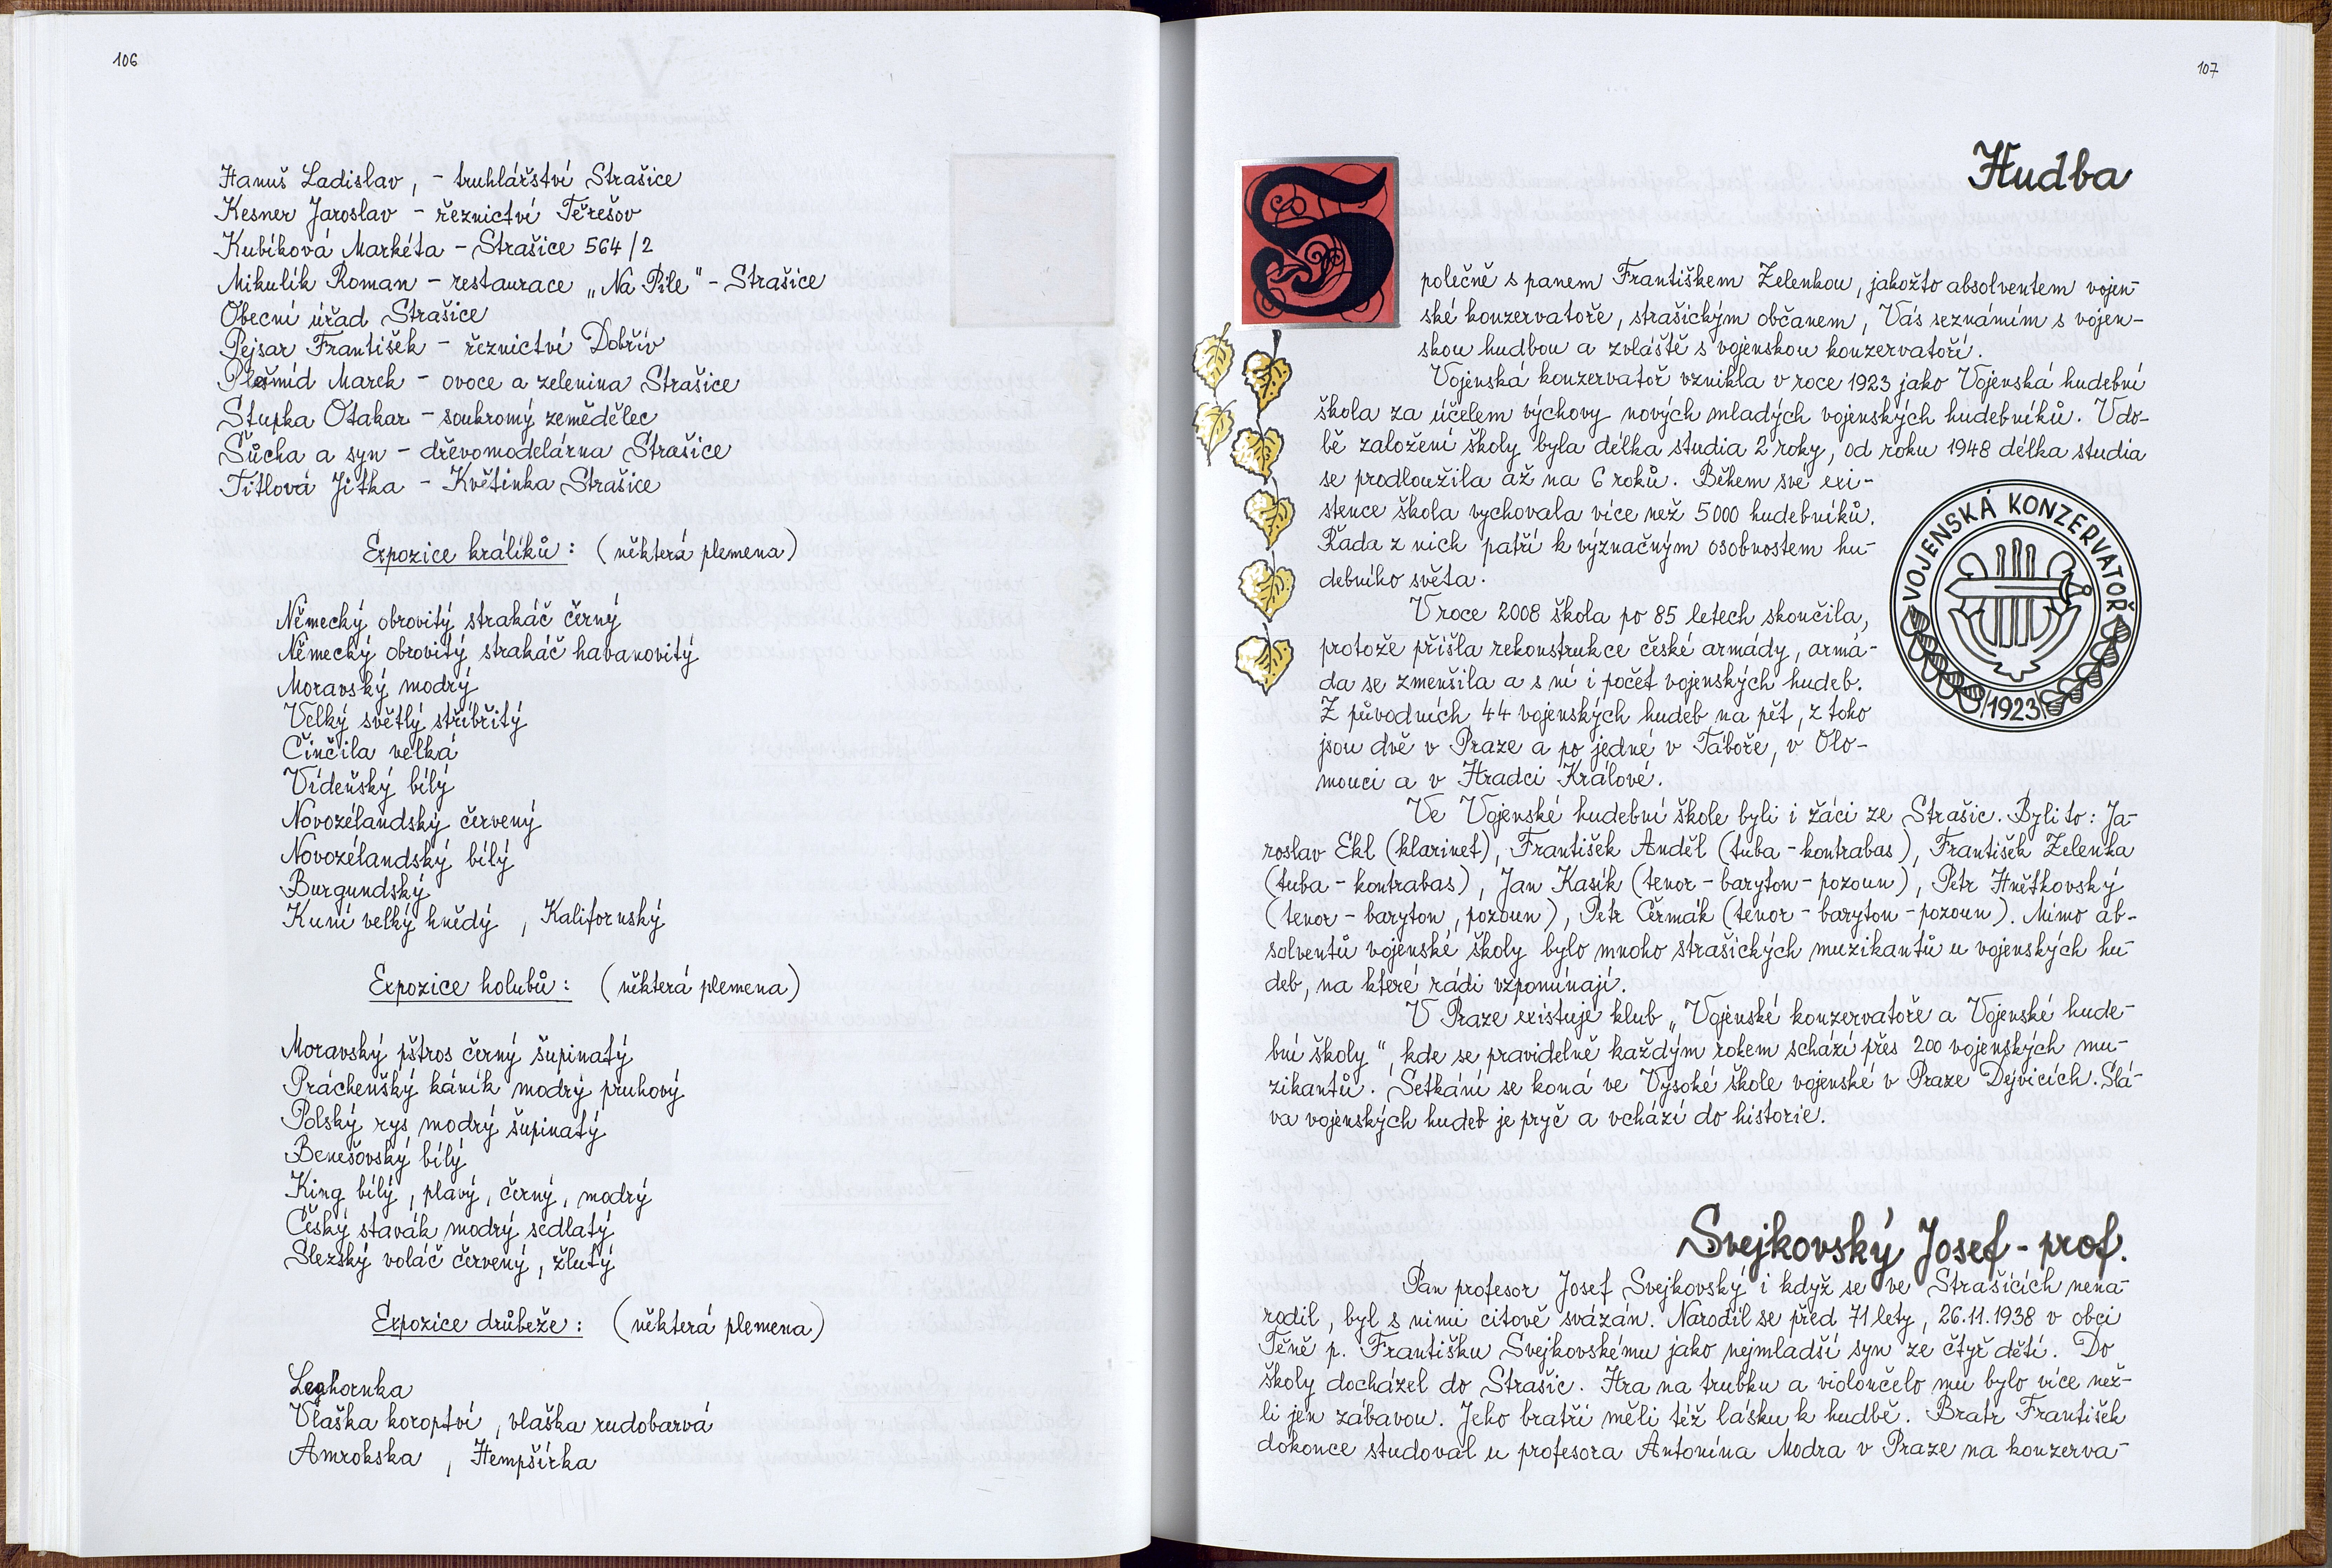 106
Hanuš Ladislav, - truhlářství Strašice
Kesner Jaroslav - řeznictví Těřešov
Kubíková Markéta - Strašice 564/2
Mikulík Roman - restaurace „Na Pile" - Strašice
Obecní úřad Strašice
Pejsar František - řeznictví Dobřív
Plešmíd Marek - ovoce a zelenina Strašice
Stupka Otakar - soukromý zemědělec
Šůcha a syn - dřevomodelárna Strašice
Titlová Jitka - Květinka Strašice
Expozice králíků: (některá plemena)
Německý obrovitý strakáč černý
Německý obrovitý strakáč havanovitý
Moravský modrý
Velký světlý stříbřitý
Činčila velká
Vídeňský bílý
Novozélandský červený
Novozélandský bílý
Burgundský
Kuní velký hnědý, Kalifornský
Expozice holubů: (některá plemena)
Moravský pštros černý šupinatý
Prácheňský káník modrý pruhový
Polský rys modrý šupinatý
Benešovský bílý
King bílý, plavý, černý, modrý
Český stavák modrý sedlatý
Slezský voláč červený, žlutý
Expozice drůbeže: (některá plemena)
Leghornka
Vlaška koroptví, vlaška rudobarvá
Amrokska, Hempšírka
107
Hudba
Společně s panem Františkem Zelenkou, jakožto absolventem vojen-
ské konzervatoře, strašickým občanem, Vás seznámím s vojen-
skou hudbou a zvláště s vojenskou konzervatoří.
Vojenská konzervatoř vznikla v roce 1923 jako Vojenská hudební
škola za účelem výchovy nových mladých vojenských hudebníků. V do-
bě založení školy byla délka studia 2 roky, od roku 1948 délka studia
se prodloužila až na 6 roků. Během své exi-
stence škola vychovala více než 5000 hudebníků.
Řada z nich patří k význačným osobnostem hu-
debního světa.
V roce 2008 škola po 85 letech skončila,
protože přišla rekonstrukce české armády, armá-
da se zmenšila a s ní i počet vojenských hudeb.
Z původních 44 vojenských hudeb na pět, z toho
jsou dvě v Praze a po jedné v Táboře, v Olo-
mouci a v Hradci Králové.
VOJENSKÁ KONZERVATOŘ
1923
Ve Vojenské hudební škole byli i žáci ze Strašic. Byli to: Ja-
roslav Ekl (klarinet), František Anděl (tuba - kontrabas), František Zelenka
(tuba - kontrabas), Jan Kasík (tenor - baryton - pozoun), Petr Hněťkovský
(tenor - baryton, pozoun), Petr Čermák (tenor - baryton - pozoun). Mimo ab-
solventů vojenské školy bylo mnoho strašických muzikantů u vojenských hu-
deb, na které rádi vzpomínají.
V Praze existuje klub „Vojenské konzervatoře a Vojenské hude-
bní školy", kde se pravidelně každým rokem schází přes 200 vojenských mu-
zikantů. Setkání se koná ve Vysoké škole vojenské v Praze Dejvicích. Slá-
va vojenských hudeb je pryč a vchází do historie.
Svejkovský Josef - prof.
Pan profesor Josef Svejkovský i když se ve Strašicích nena-
rodil, byl s nimi citově svázán. Narodil se před 71 lety, 26.11.1938 v obci
Těně p. Františku Svejkovskému jako nejmladší syn ze čtyř dětí. Do
školy docházel do Strašic. Hra na trubku a violončelo mu bylo více než-
li jen zábavou. Jeho bratři měli též lásku k hudbě. Bratr František
dokonce studoval u profesora Antonína Modra v Praze na konzerva-